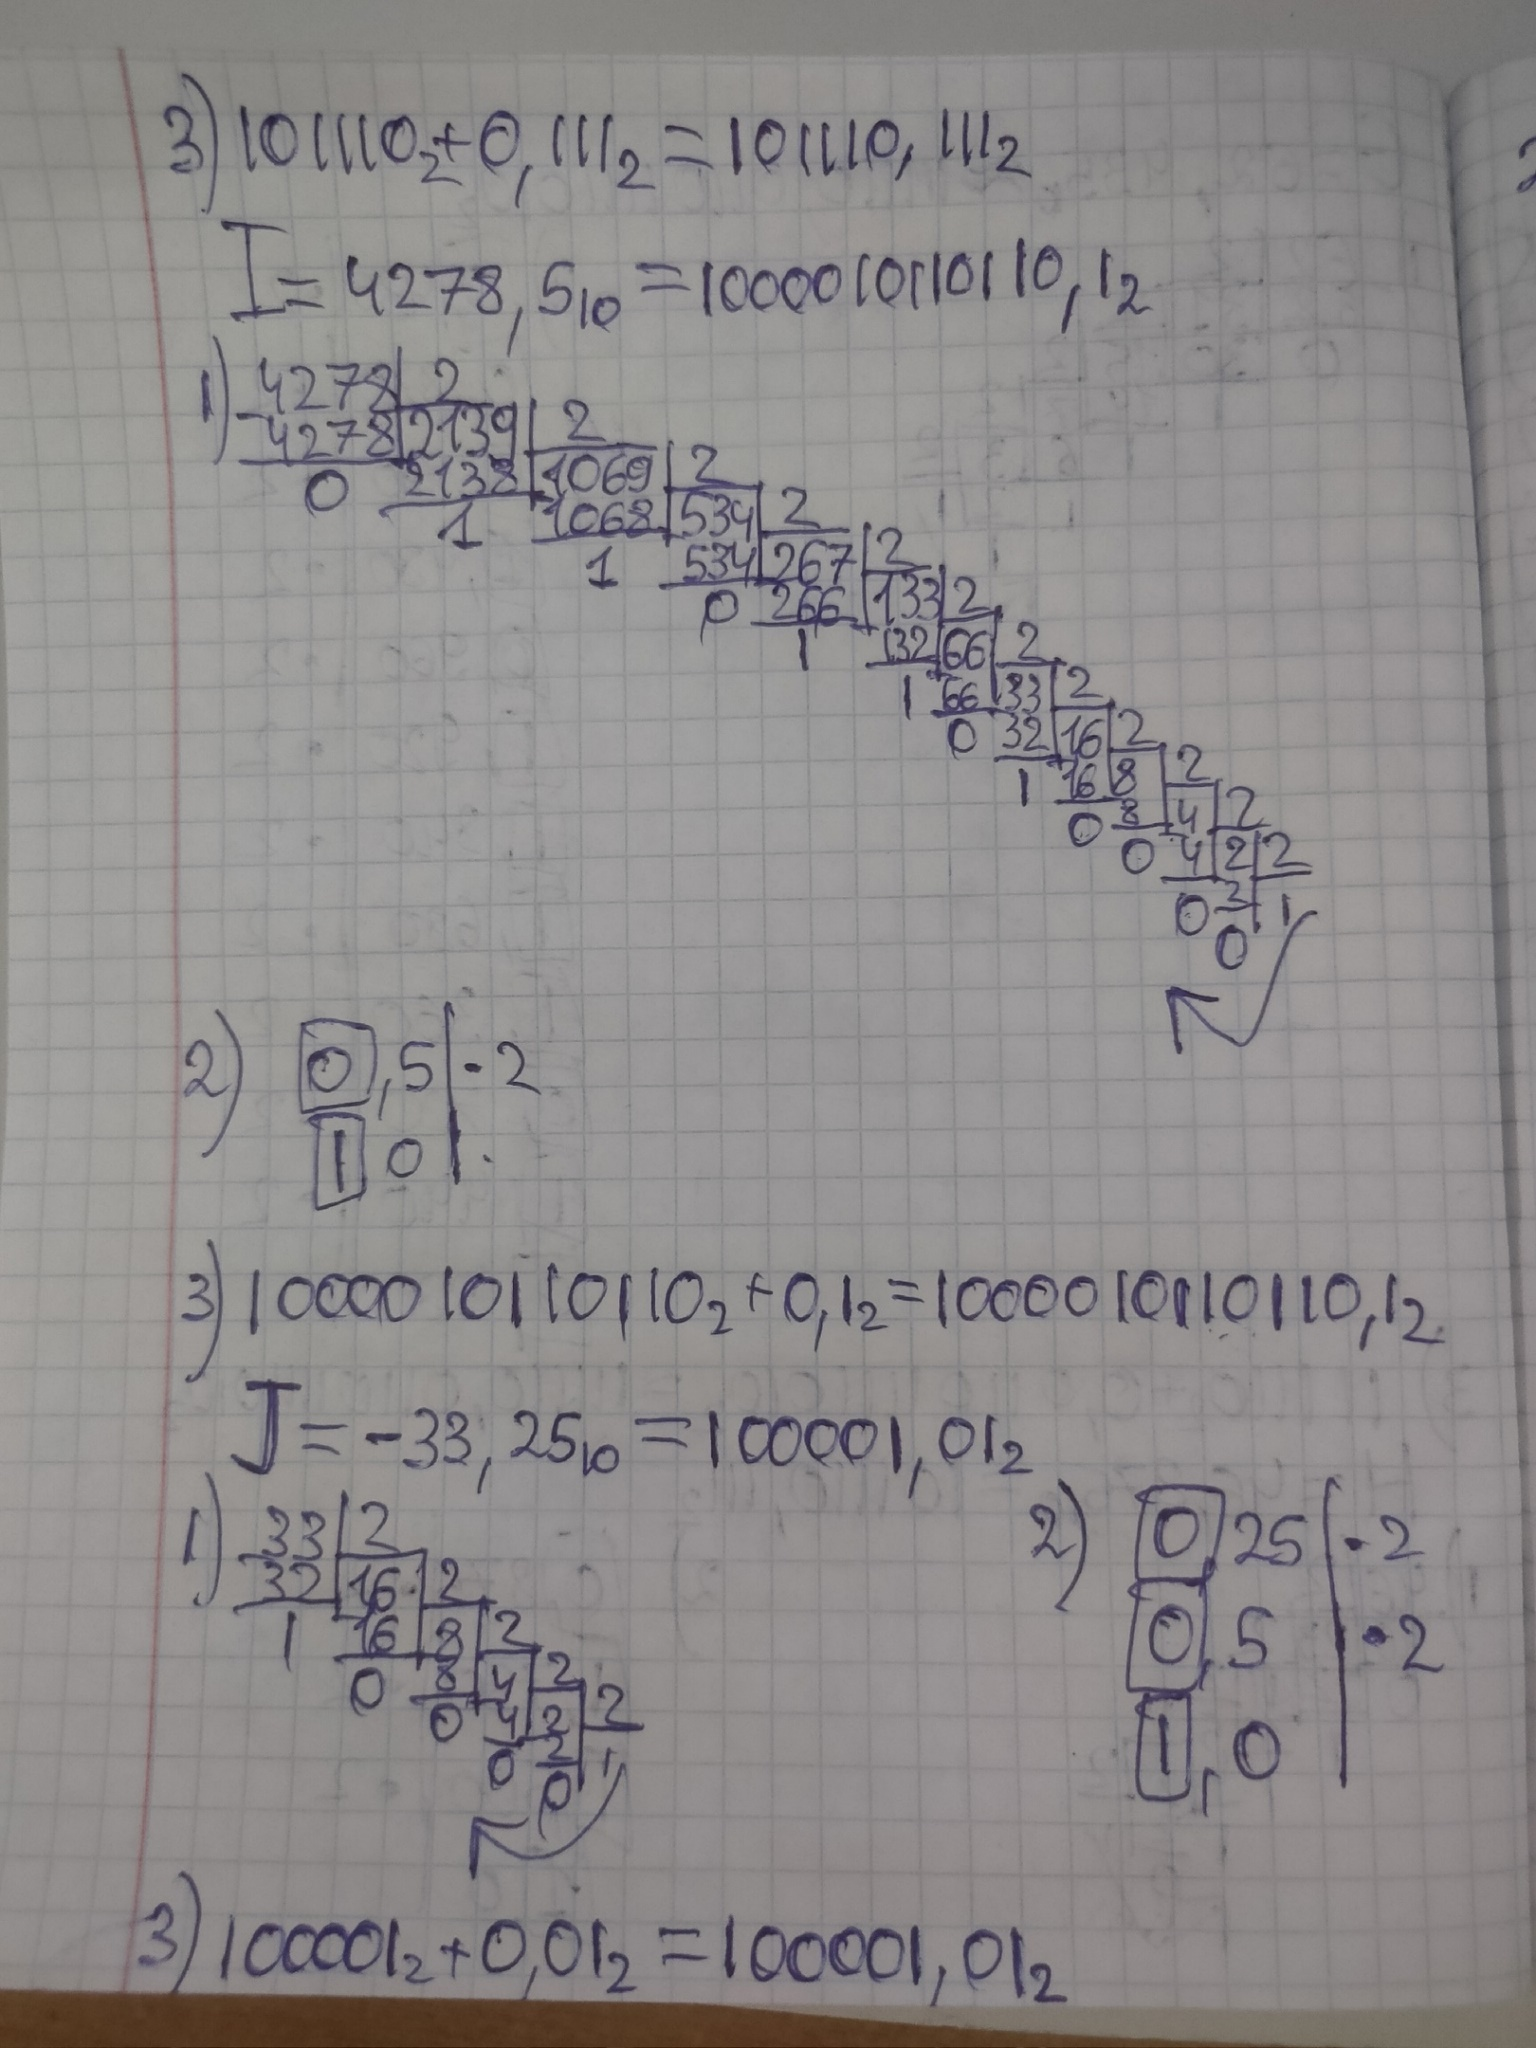 3) 101110₂+0,111₂=101110,111₂
I=4278,5₁₀=1000010110110,1₂
1) 4278 2
-4278 2139 2
0 2138 1069 2
1 1068 534 2
1 534 267 2
0 266 133 2
1 132 66 2
1 66 33 2
0 32 16 2
1 16 8 2
0 8 4 2
0 4 2 2
0 2 1
0
2) 0,5 ·2
1 0
3) 1000010110110₂+0,1₂=1000010110110,1₂
J=-33,25₁₀=100001,01₂
1) -33 2
32 16 2
1 16 8 2
0 8 4 2
0 4 2 2
0 2 1
0
2) 0,25 ·2
0,5 ·2
1,0
3) 100001₂+0,01₂=100001,01₂